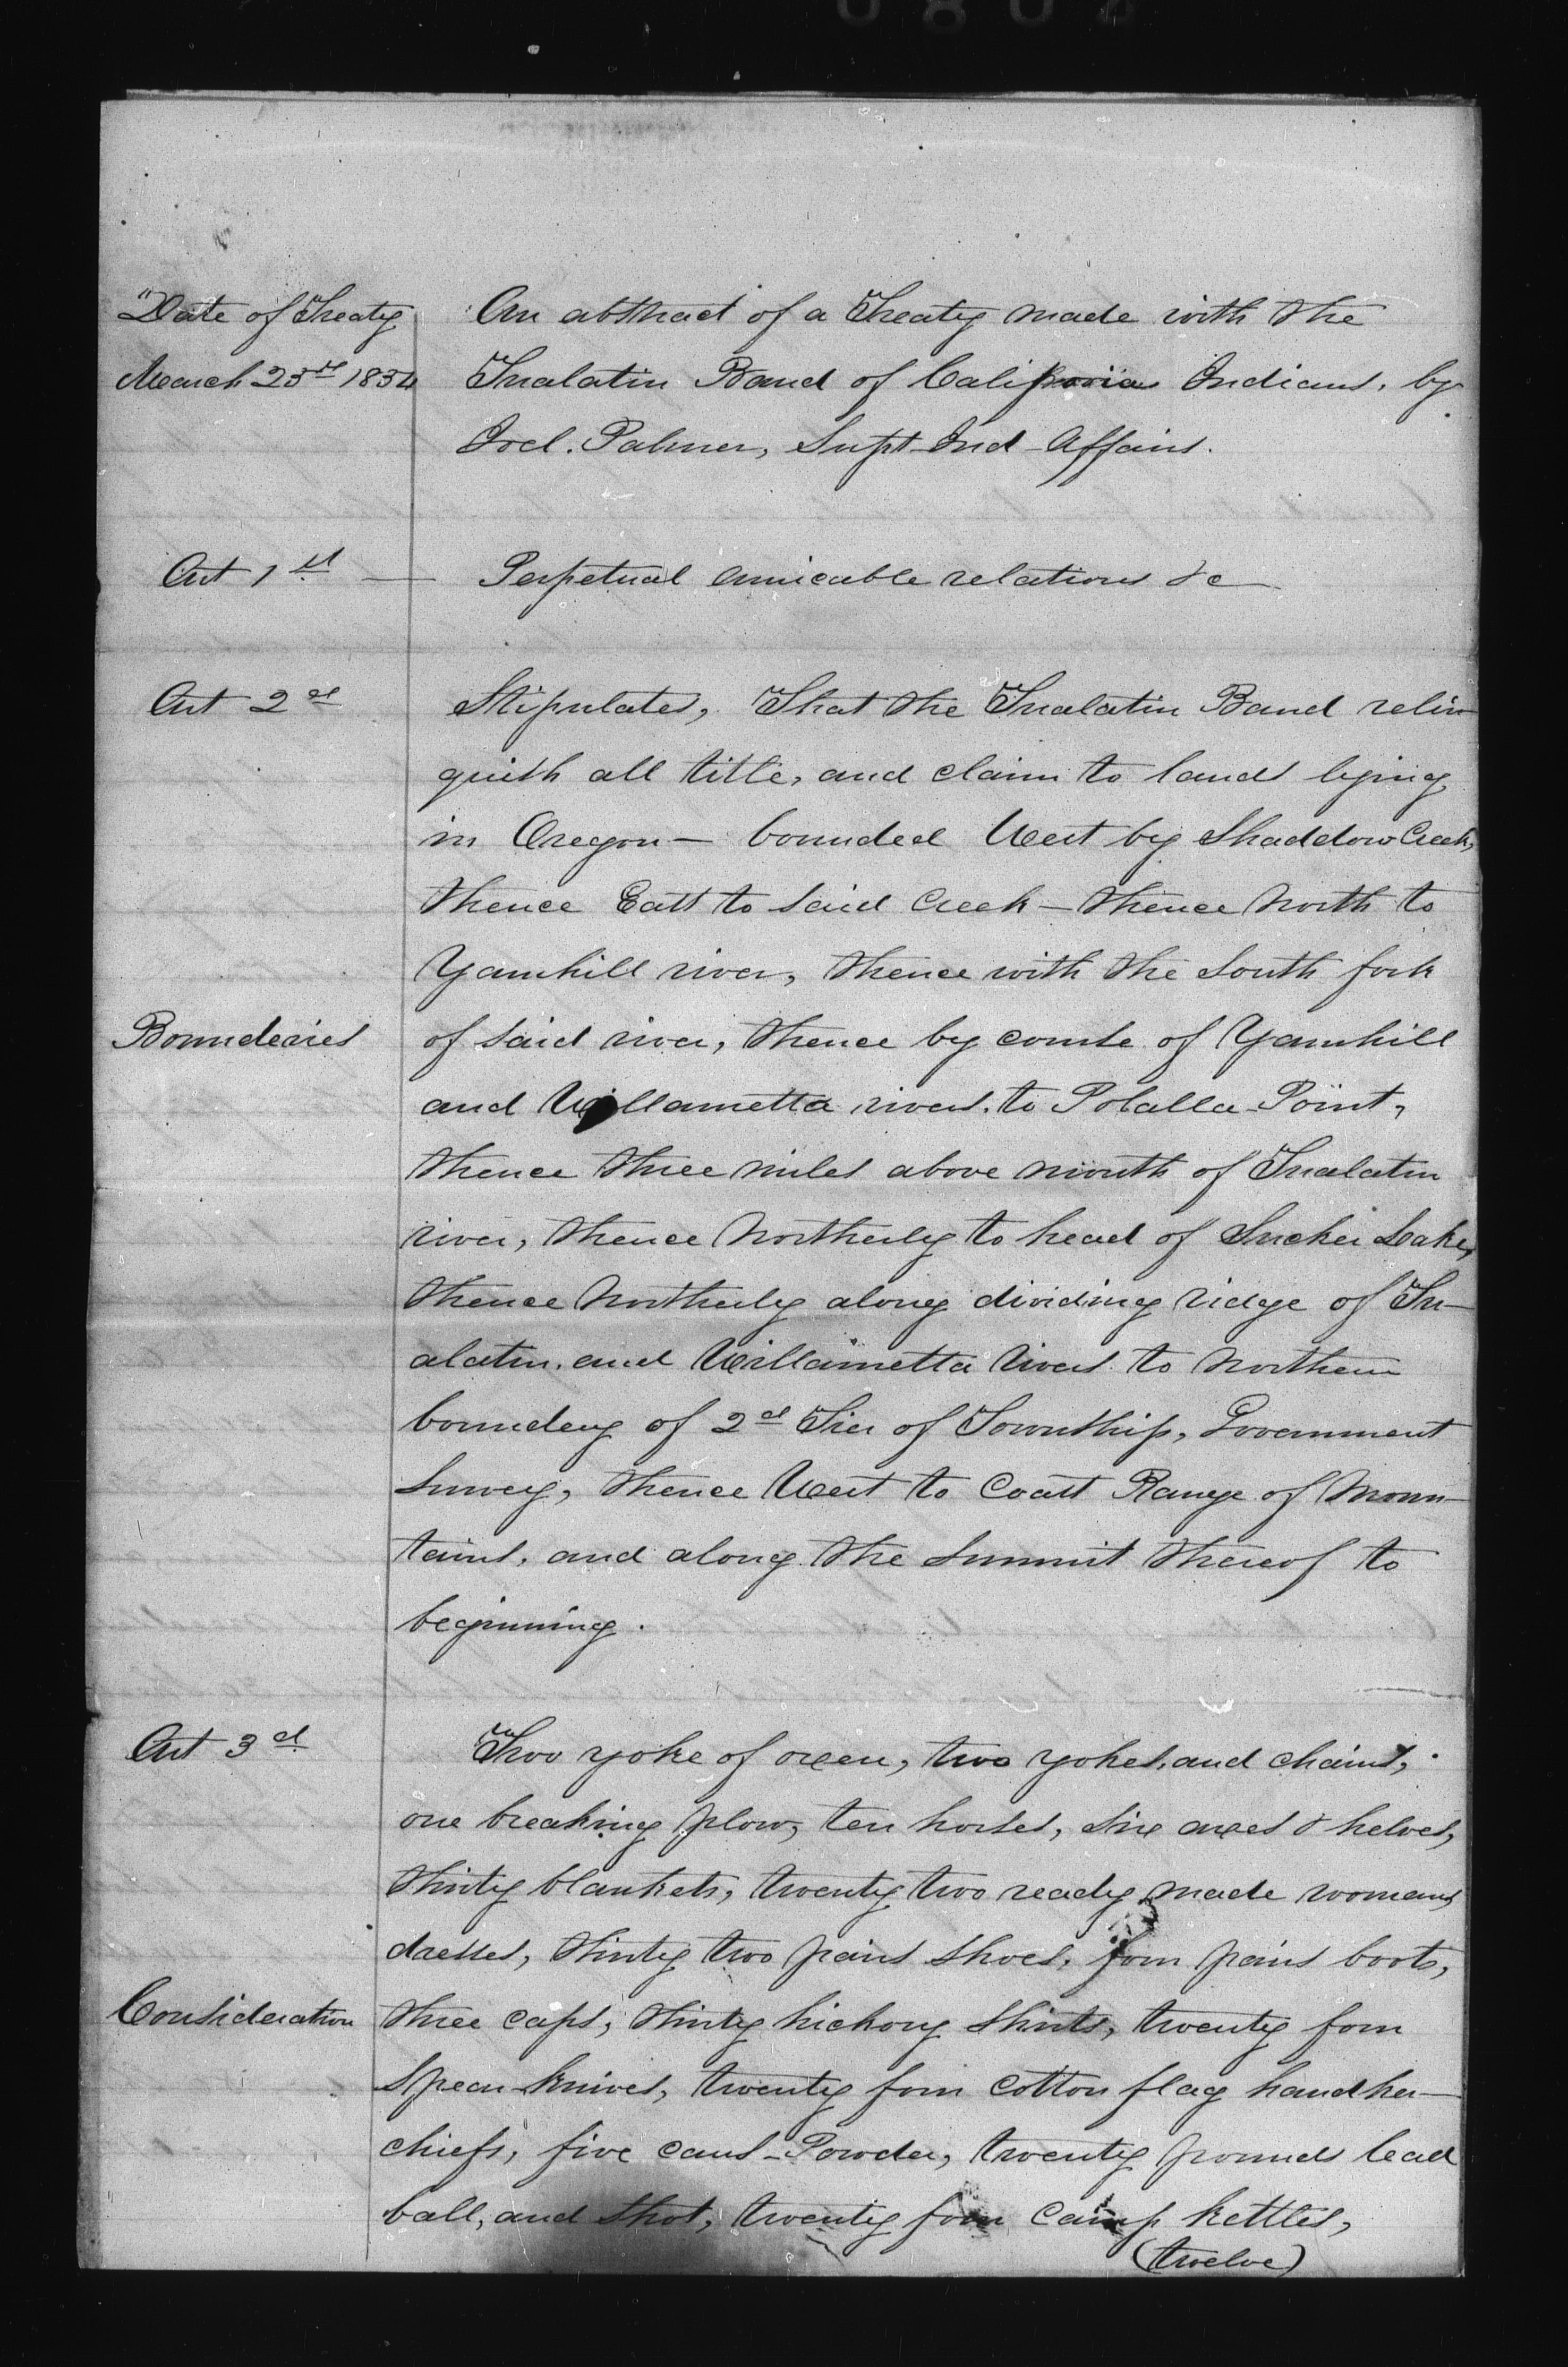 "Date of Treaty
March 25th 1854
An abstract of a Treaty made with the
Tualatin Band of Indians, by
Joel. Palmer, Supt Ind Affairs.
Art 1st — Perpetual amicable relations &c
Art 2d
Stipulates, That the Tualatin Band relin-
quish all title, and claim to lands lying
in Oregon — bounded West by Shaddow Creek,
thence East to said Creek — thence North to
Yamhill river, thence with the South fork
Bounderies
of said river, thence by course of Yamhill
and Willametta rivers. to Polalla Point,
thence three miles above mouth of Tualatin
river, thence Northerly to head of Sucker Lake,
thence Northerly along dividing ridge of Tu-
alatin. and Willametta rivers to Northern
boundery of 2d Tier of Township, Government
Survey, thence West to Coast Range of Moun-
tains, and along the Summit thereof to
beginning.
Art 3d
Two yoke of oxen, two yokes, and chains,
one breaking plow, ten horses, six axes & helves,
thirty blankets, twenty two ready made womans
dresses, thirty two pairs shoes, four pairs boots,
Consideration
three caps, thirty hickory shirts, twenty four
spear knives, twenty four cotton flag handker-
chiefs, five cans Powder, twenty pounds lead
ball, and shot, twenty four camp kettles,
(twelve)